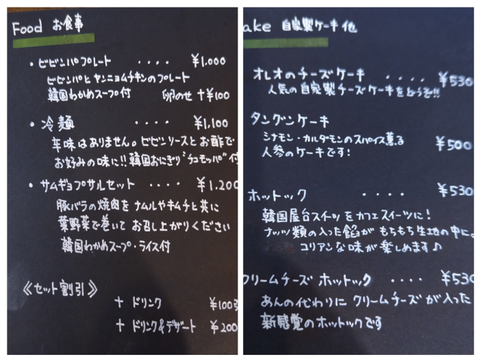 Food お食事
・ビビンバプレート ‥‥ ¥1.000
ビビンバとヤンニョムチキンのプレート
韓国わかめスープ付 卵のせ +¥100
・冷麺 ‥‥ ¥1,100
辛味はありません。ビビンソースとお酢で
お好みの味に!!韓国おにぎり"チュモッパ"付
・サムギョプサルセット ‥‥ ¥1.200
豚バラの焼肉をナムルやキムチと共に
葉野菜で巻いてお召し上がりください
韓国わかめスープ・ライス付
《セット割引》
+ ドリンク ¥100
+ ドリンク&デザート ¥200
ake 自家製ケーキ他
オレオのチーズケーキ ‥‥ ¥530
人気の自家製チーズケーキをどうぞ!!
タングンケーキ
シナモン・カルダモンのスパイス薫る ¥500
人参のケーキです!
ホットック ‥‥ ¥530
韓国屋台スイーツをカフェスイーツに!
ナッツ類の入った餡がもちもち生地の中に。
コリアンな味が楽しめます♪
クリームチーズ ホットック ‥‥ ¥530
あんの代わりにクリームチーズが入った
新感覚のホットックです